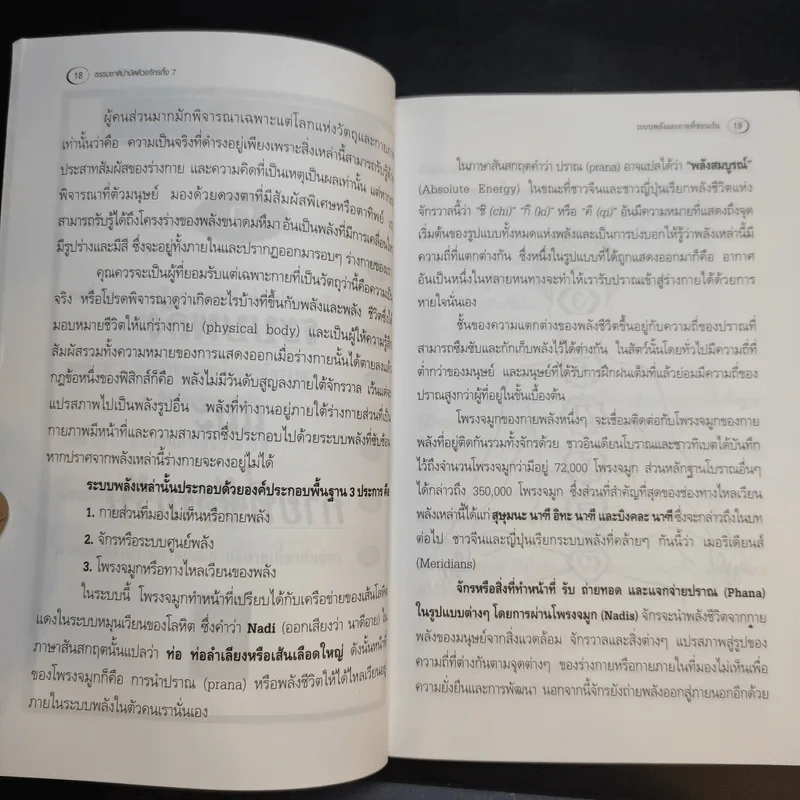 18 ธรรมชาติบำบัดด้วยจักรทั้ง 7
ผู้คนส่วนมากมักพิจารณาเฉพาะแต่โลกแห่งวัตถุและกายภาพ
เท่านั้นว่าคือ ความเป็นจริงที่ดำรงอยู่เพียงเพราะสิ่งเหล่านี้สามารถรับรู้ได้
ประสาทสัมผัสของร่างกาย และความคิดที่เป็นเหตุเป็นผลเท่านั้น แต่หาก
พิจารณาที่ตัวมนุษย์ มองด้วยดวงตาที่มีสัมผัสพิเศษหรือตาทิพย์
สามารถรับรู้ได้ถึงโครงร่างของพลังขนาดมหึมา อันเป็นพลังที่มีการเคลื่อนไหว
มีรูปร่างและมีสี ซึ่งจะอยู่ทั้งภายในและปรากฏออกมารอบๆ ร่างกายของ
คุณควรจะเป็นผู้ที่ยอมรับแต่เฉพาะกายที่เป็นวัตถุว่านี้คือความเป็น
จริง หรือโปรดพิจารณาดูว่าเกิดอะไรบ้างที่ขึ้นกับพลังและพลัง ชีวิตซึ่งได้
มอบหมายชีวิตให้แก่ร่างกาย (physical body) และเป็นผู้ให้ความรู้สึก
สัมผัสรวมทั้งความหมายของการแสดงออกเมื่อร่างกายนั้นได้ตายลงแล้ว
กฎข้อหนึ่งของฟิสิกส์ก็คือ พลังไม่มีวันดับสูญลงภายใต้จักรวาล เว้นแต่จะ
แปรสภาพไปเป็นพลังรูปอื่น พลังที่ทำงานอยู่ภายใต้ร่างกายส่วนที่เป็น
กายภาพมีหน้าที่และความสามารถซึ่งประกอบไปด้วยระบบพลังที่ซับซ้อน
หากปราศจากพลังเหล่านี้ร่างกายจะคงอยู่ไม่ได้
ระบบพลังเหล่านั้นประกอบด้วยองค์ประกอบพื้นฐาน 3 ประการ คือ
1. กายส่วนที่มองไม่เห็นหรือกายพลัง
2. จักรหรือระบบศูนย์พลัง
3. โพรงจมูกหรือทางไหลเวียนของพลัง
ในระบบนี้ โพรงจมูกทำหน้าที่เปรียบได้กับเครือข่ายของเส้นโลหิต
แดงในระบบหมุนเวียนของโลหิต ซึ่งคำว่า Nadi (ออกเสียงว่า นาดีอาย) ใน
ภาษาสันสกฤตนั้นแปลว่า ท่อ ท่อลำเลียงหรือเส้นเลือดใหญ่ ดังนั้นหน้าที่
ของโพรงจมูกก็คือ การนำปราณ (prana) หรือพลังชีวิตให้ได้ไหลเวียนอยู่
ภายในระบบพลังในตัวคนเรานั่นเอง
ระบบพลังและกายที่ซ่อนเร้น 19
ในภาษาสันสกฤตคำว่า ปราณ (prana) อาจแปลได้ว่า "พลังสมบูรณ์"
(Absolute Energy) ในขณะที่ชาวจีนและชาวญี่ปุ่นเรียกพลังชีวิตแห่ง
จักรวาลนี้ว่า "ชิ (chi)" "กิ (ki)" หรือ "คี (qi)" อันมีความหมายที่แสดงถึงจุด
เริ่มต้นของรูปแบบทั้งหมดแห่งพลังและเป็นการบ่งบอกให้รู้ว่าพลังเหล่านี้มี
ความถี่ที่แตกต่างกัน ซึ่งหนึ่งในรูปแบบที่ได้ถูกแสดงออกมาก็คือ อากาศ
อันเป็นหนึ่งในหลายหนทางจะทำให้เรารับปราณเข้าสู่ร่างกายได้ด้วยการ
หายใจนั่นเอง
ชั้นของความแตกต่างของพลังชีวิตขึ้นอยู่กับความถี่ของปราณที่
สามารถซึมซับและกักเก็บพลังไว้ได้ต่างกัน ในสัตว์นั้นโดยทั่วไปมีความถี่ที่
ต่ำกว่าของมนุษย์ และมนุษย์ที่ได้รับการฝึกฝนเต็มที่แล้วย่อมมีความถี่ของ
ปราณสูงกว่าผู้ที่อยู่ในขั้นเบื้องต้น
โพรงจมูกของกายพลังหนึ่งๆ จะเชื่อมติดต่อกับโพรงจมูกของกาย
พลังที่อยู่ติดกันรวมทั้งจักรด้วย ชาวอินเดียนโบราณและชาวทิเบตได้บันทึก
ไว้ถึงจำนวนโพรงจมูกว่ามีอยู่ 72,000 โพรงจมูก ส่วนหลักฐานโบราณอื่นๆ
ได้กล่าวถึง 350,000 โพรงจมูก ซึ่งส่วนที่สำคัญที่สุดของช่องทางไหลเวียน
พลังเหล่านี้ได้แก่ สุษุมนะ นาฑี อิทะ นาฑี และบิงคละ นาฑี ซึ่งจะกล่าวถึงในบท
ต่อไป ชาวจีนและญี่ปุ่นเรียกระบบพลังที่คล้ายๆ กันนี้ว่า เมอริเดียนส์
(Meridians)
จักรหรือสิ่งที่ทำหน้าที่ รับ ถ่ายทอด และแจกจ่ายปราณ (Phana)
ในรูปแบบต่างๆ โดยการผ่านโพรงจมูก (Nadis) จักรจะนำพลังชีวิตจากกาย
พลังของมนุษย์จากสิ่งแวดล้อม จักรวาลและสิ่งต่างๆ แปรสภาพสู่รูปของ
ความถี่ที่ต่างกันตามจุดต่างๆ ของร่างกายหรือกายภายในที่มองไม่เห็นเพื่อ
ความยั่งยืนและการพัฒนา นอกจากนี้จักรยังถ่ายพลังออกสู่ภายนอกอีกด้วย